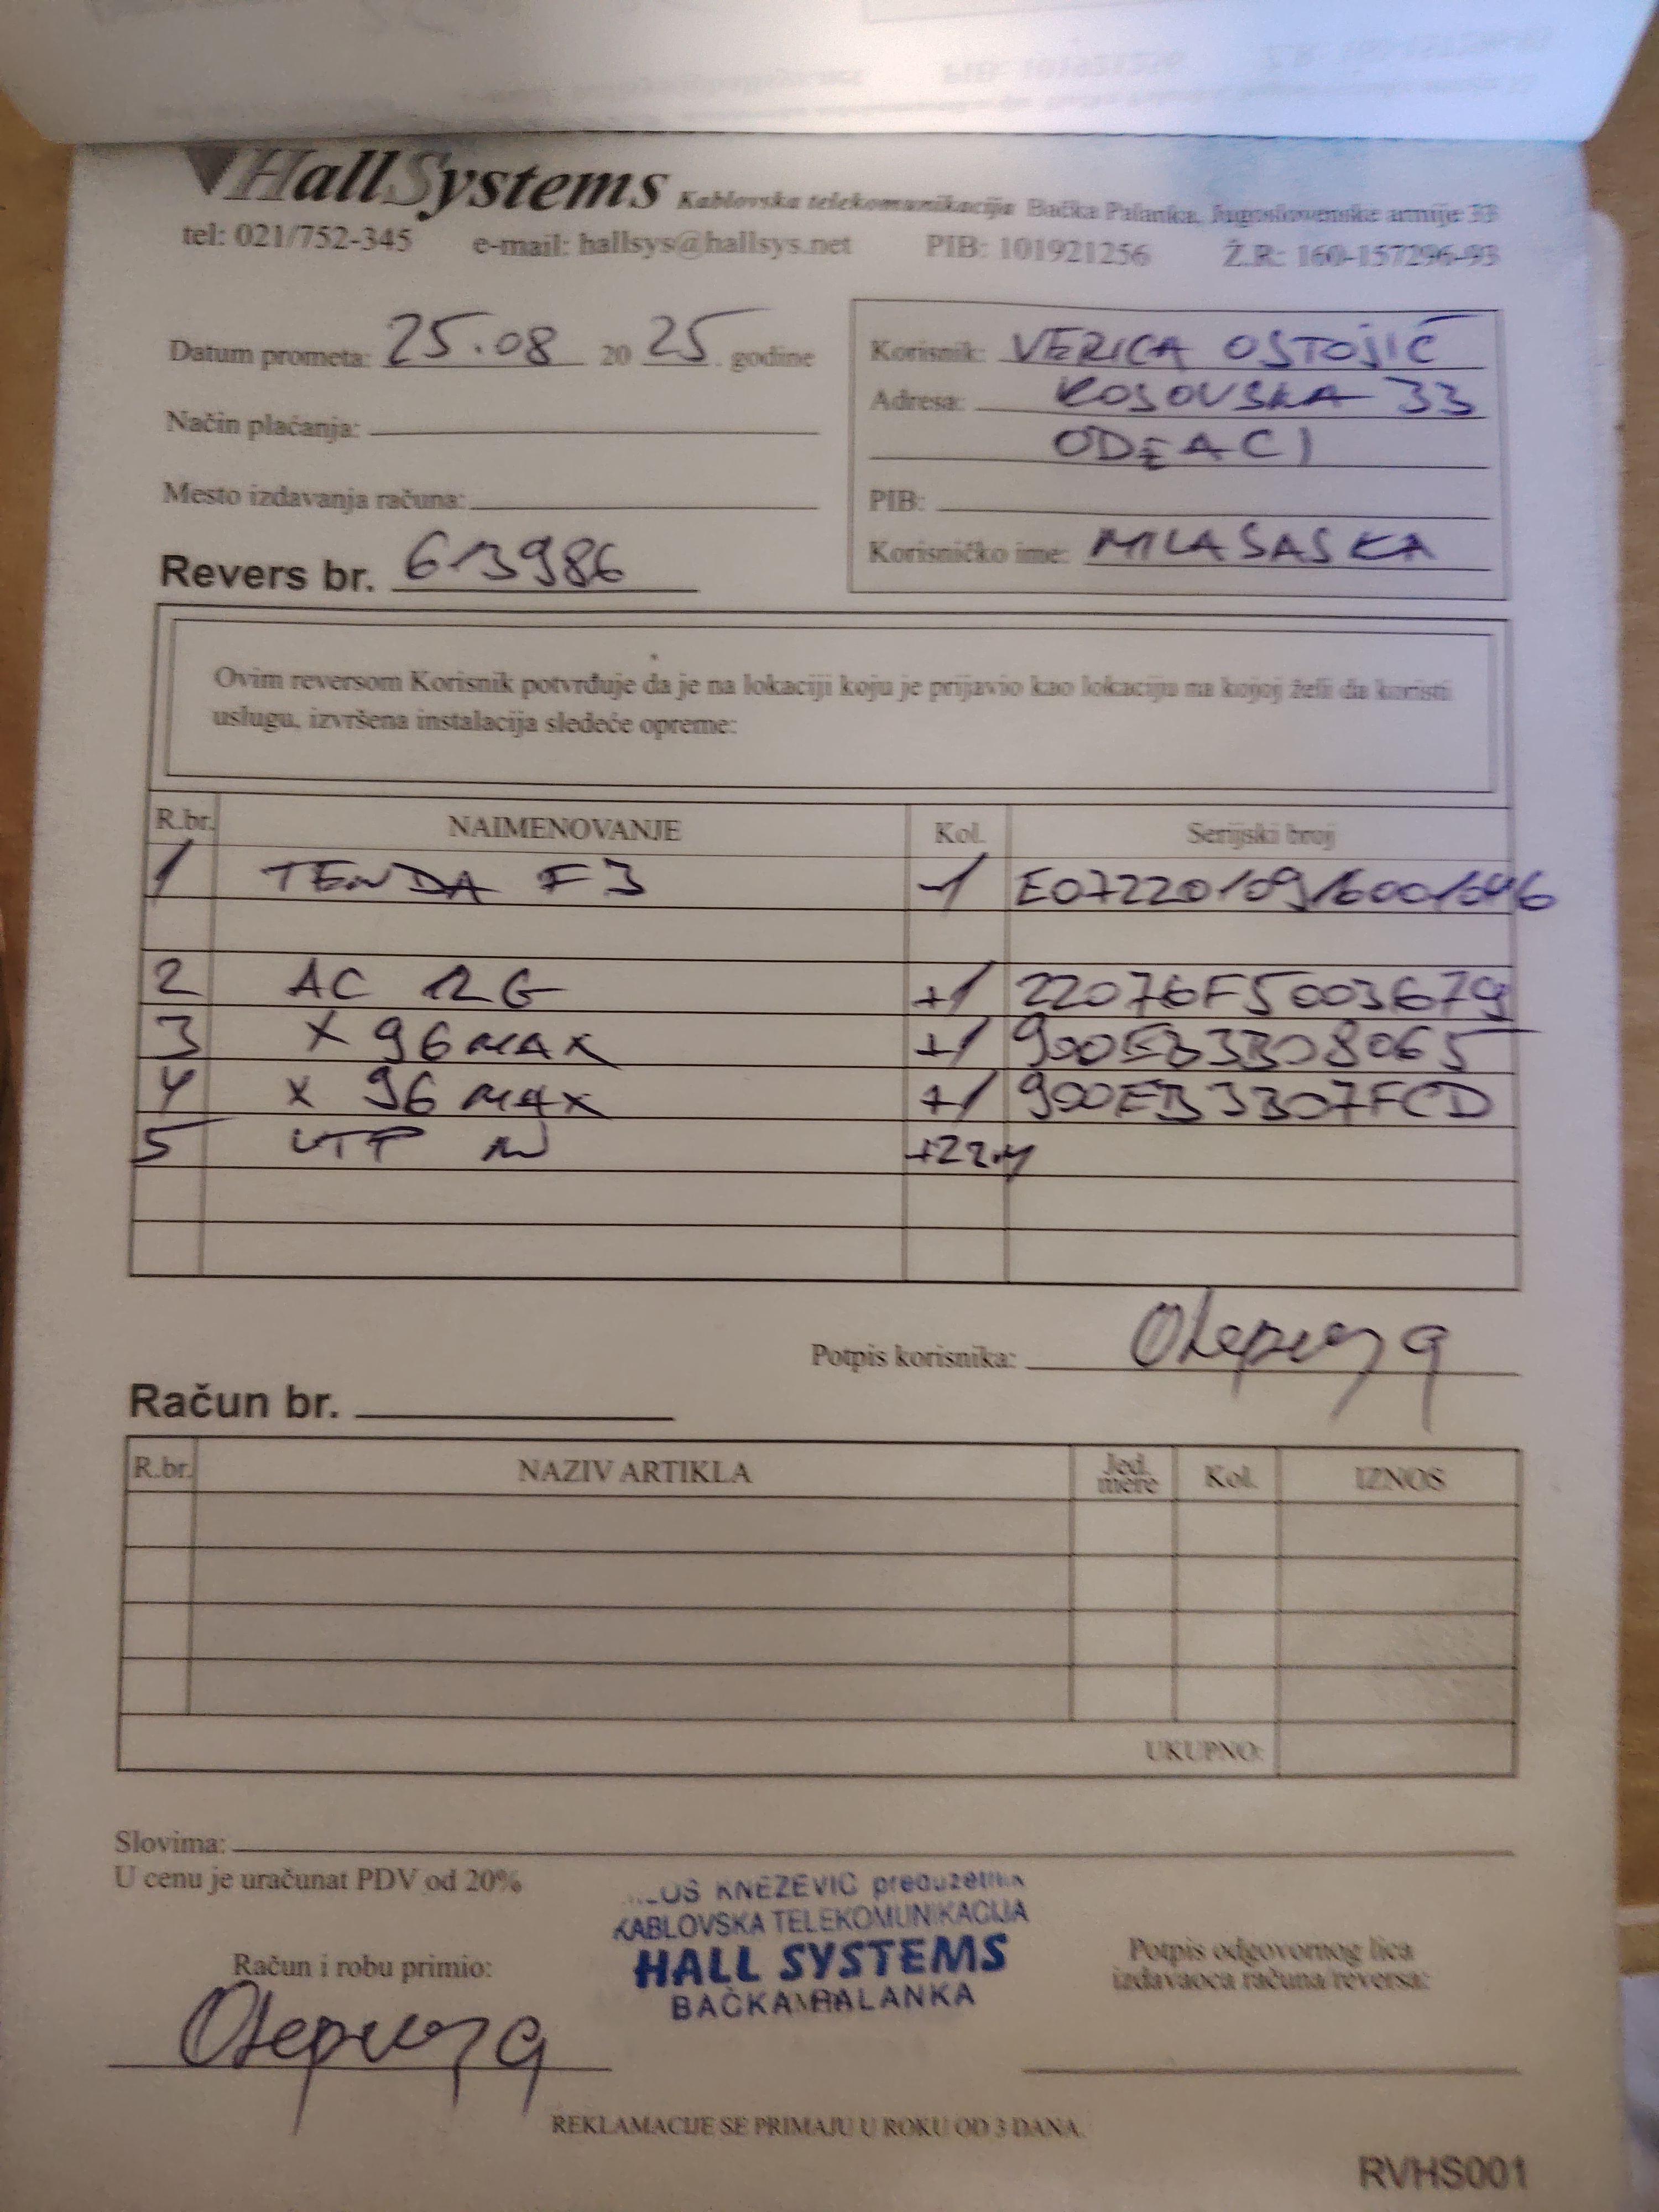 HallSystems Kablovska telekomunikacija Bačka Palanka, Jugoslovenske armije 33
tel: 021/752-345 e-mail: hallsys@hallsys.net PIB: 101921256 Ž.R: 160-157296-93
Datum prometa: 25.08 2025. godine
Način plaćanja:
Mesto izdavanja računa:
Revers br. 613986
Korisnik: VERICA OSTOJIĆ
Adresa: KOSOVSKA 33
ODŽACI
PIB:
Korisničko ime: MILASASKA
Ovim reversom Korisnik potvrđuje da je na lokaciji koju je prijavio kao lokaciju na kojoj želi da koristi
uslugu, izvršena instalacija sledeće opreme:
R.br. NAIMENOVANJE Kol. Serijski broj
1 TENDA F3 -1
2 AC 12G +1 22076F5003679
3 X96 MAX +1 900EB3308065
4 X96 MAX +1 900EB3307FCD
5 UTP N +22m
Potpis korisnika:
Račun br.
R.br. NAZIV ARTIKLA Jed. mere Kol. IZNOS
UKUPNO:
Slovima:
U cenu je uračunat PDV od 20%
KNEZEVIC preduzetnik
KABLOVSKA TELEKOMUNIKACIJA
HALL SYSTEMS
BAČKA PALANKA
Račun i robu primio:
Potpis odgovornog lica
izdavaoca računa/reversa:
REKLAMACIJE SE PRIMAJU U ROKU OD 3 DANA.
RVHS001